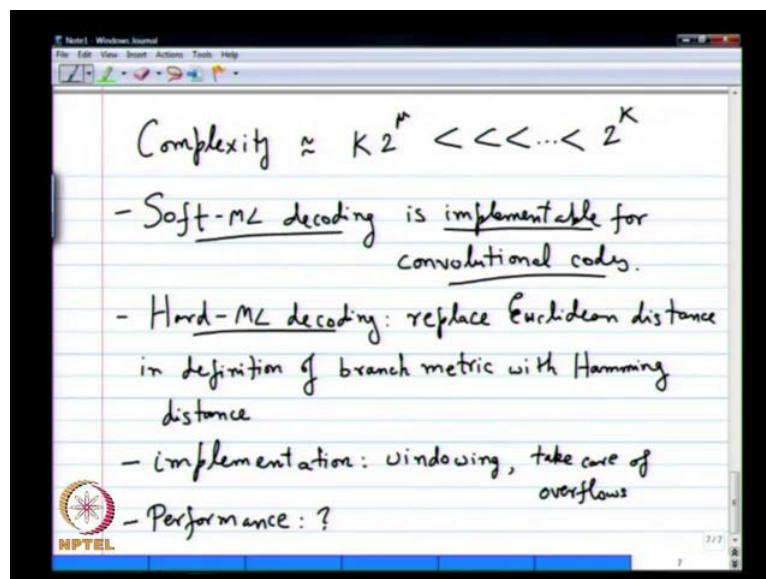 Note1 - Windows Journal
File Edit View Insert Actions Tools Help
Complexity ≈ K 2^μ < < < ... < 2^K
- Soft-ML decoding is implementable for
convolutional codes.
- Hard-ML decoding: replace Euclidean distance
in definition of branch metric with Hamming
distance
- implementation: windowing, take care of
overflows
- Performance: ?
NPTEL
7/7
7